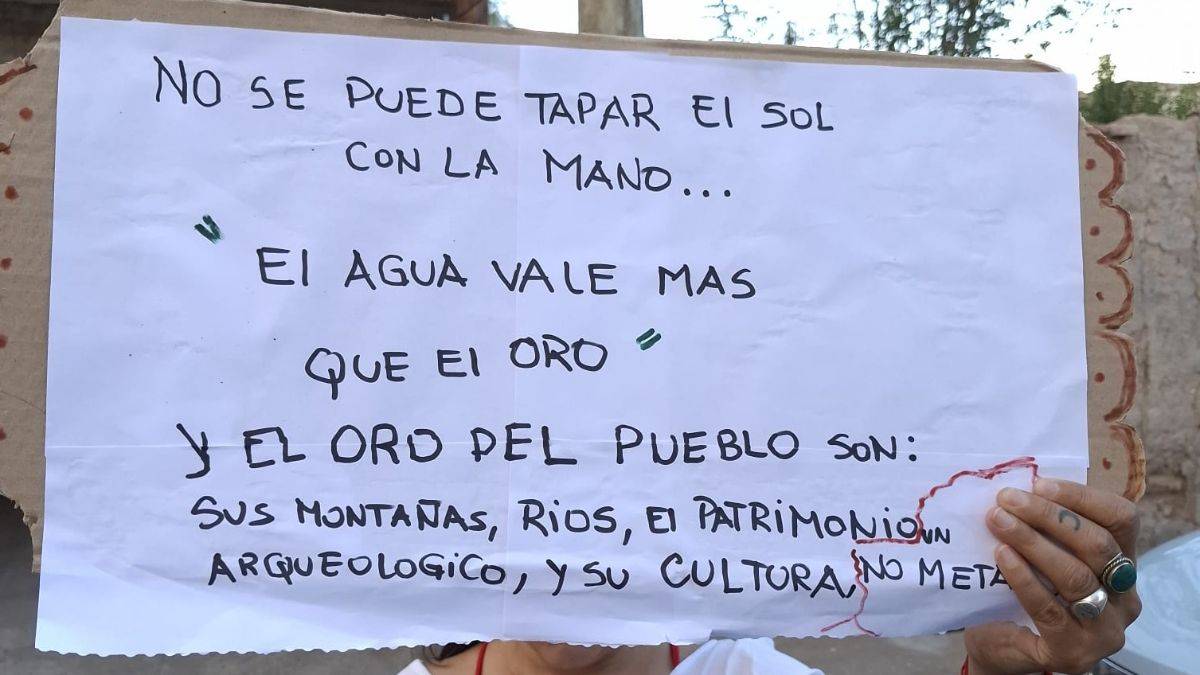 NO SE PUEDE TAPAR El SOL
CON LA MANO...
"El AGUA VALE MAS
QUE El ORO"
Y EL ORO DEL PUEBLO SON:
SUS MONTAÑAS, RiOS, El PATRiMONiO UN
ARQUEOLOGiCO, Y SU CULTURA, NO META